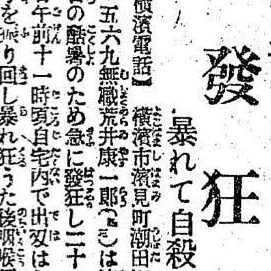 發狂
暴れて自殺
横濱電話】 横濱市濱見町潮田
五六九無職荒井康一郎()は
の酷暑のため急に發狂し二十
午前十一時頃自宅内で出刄は
を振り回し暴れ狂うた後咽喉